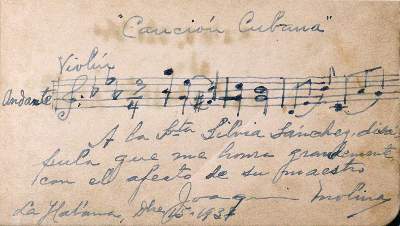 "Canción Cubana"
Violín
Andante
2
4
A la Srta Silvia Sanchez, discí-
pula que me honra grandemente
con el afecto de su maestro
Joaquin Molina
La Habana, Dbre 15-1937